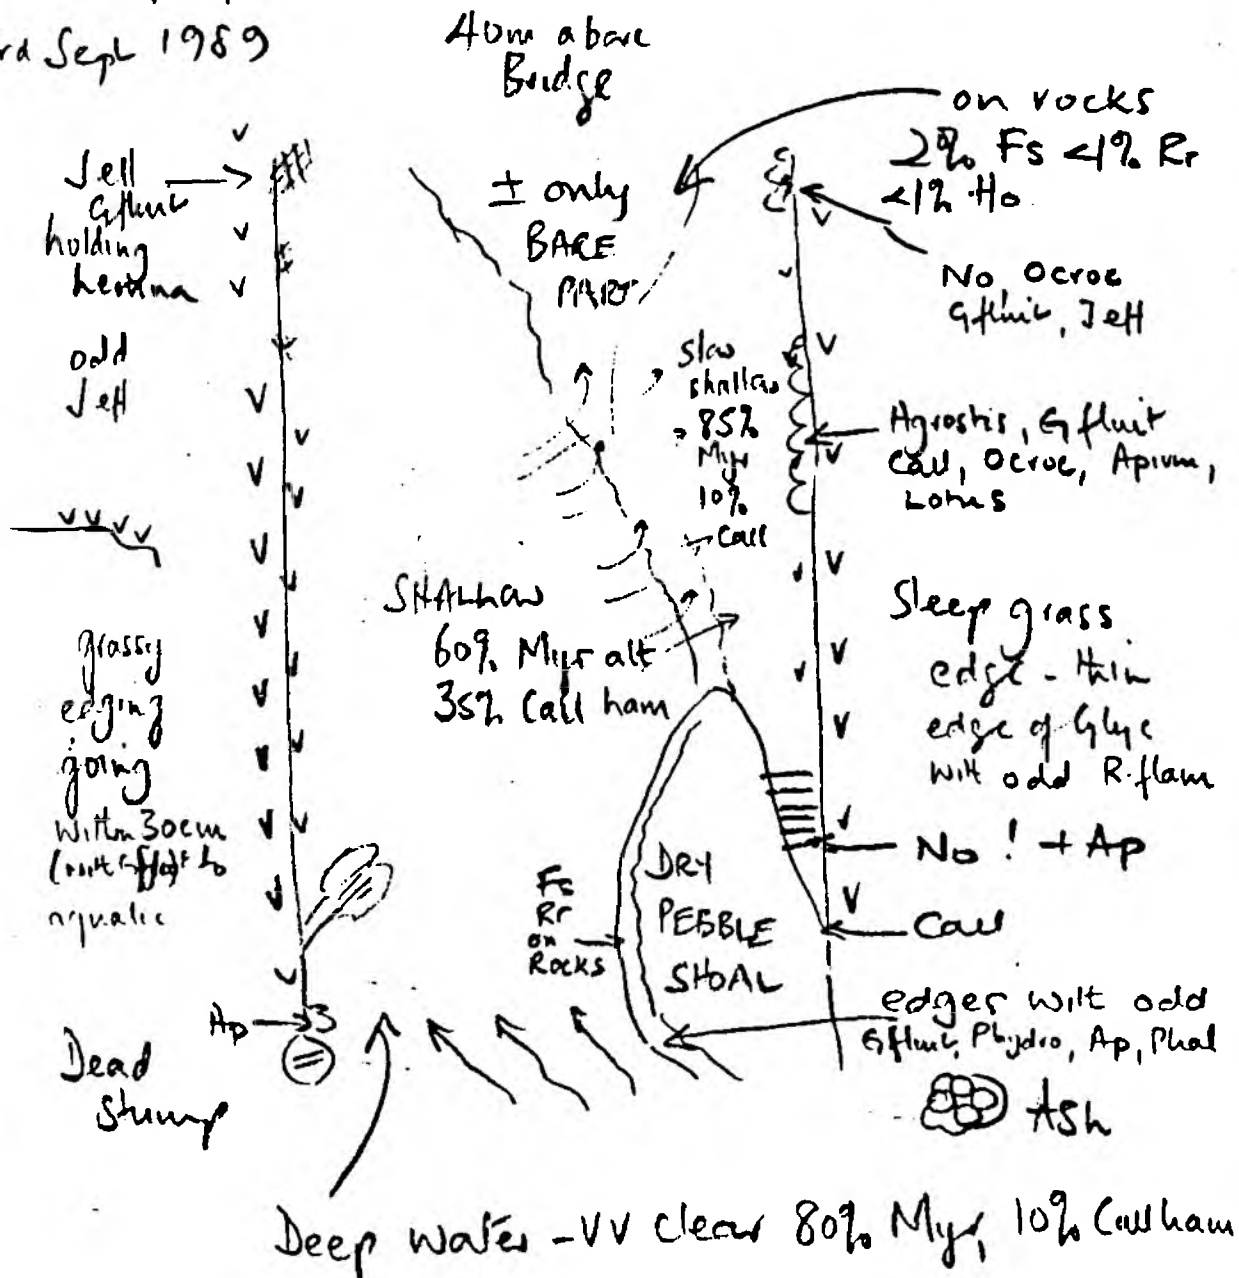 rd Sept 1989
40m above
Bridge
on rocks
2% Fs <1% Rr
<1% Ho
Jeff
Gfluit
holding
± only
BARE
PART
No Ocroc
Gfluit, Jeff
odd
Jeff
Slow
shallow
85%
Myr
10%
Call
Agrostis, Gfluit
Call, Ocroc, Apium,
Lotus
SHALLOW
60% Myr alt
35% Call ham
Steep grass
edge - thin
edge of Glyc
with odd R.flam
grassy
edging
going
within 30cm
to
aquatic
No ! + Ap
Call
Fs
Rr
on
Rocks
DRY
PEBBLE
SHOAL
edges with odd
Gfluit, Phydro, Ap, Phal
Ap
Dead
Stump
Ash
Deep water - VV clear 80% Myr, 10% Call ham